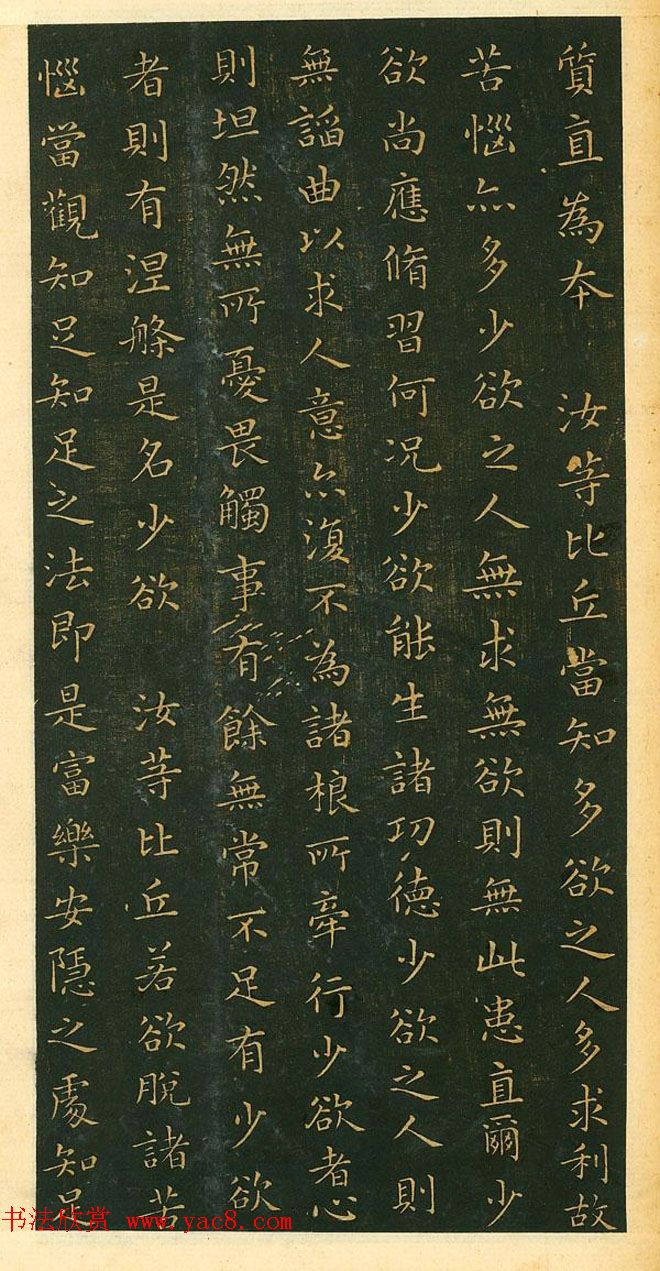 質直為本　汝等比丘當知多欲之人多求利故
苦惱亦多少欲之人無求無欲則無此患直爾少
欲尚應脩習何况少欲能生諸功德少欲之人則
無謟曲以求人意亦復不為諸根所牽行少欲者心
則坦然無所憂畏觸事有餘無常不足有少欲
者則有涅槃是名少欲　汝等比丘若欲脫諸苦
惱當觀知足知足之法即是富樂安隱之處知足
书法欣赏 www.yac8.com